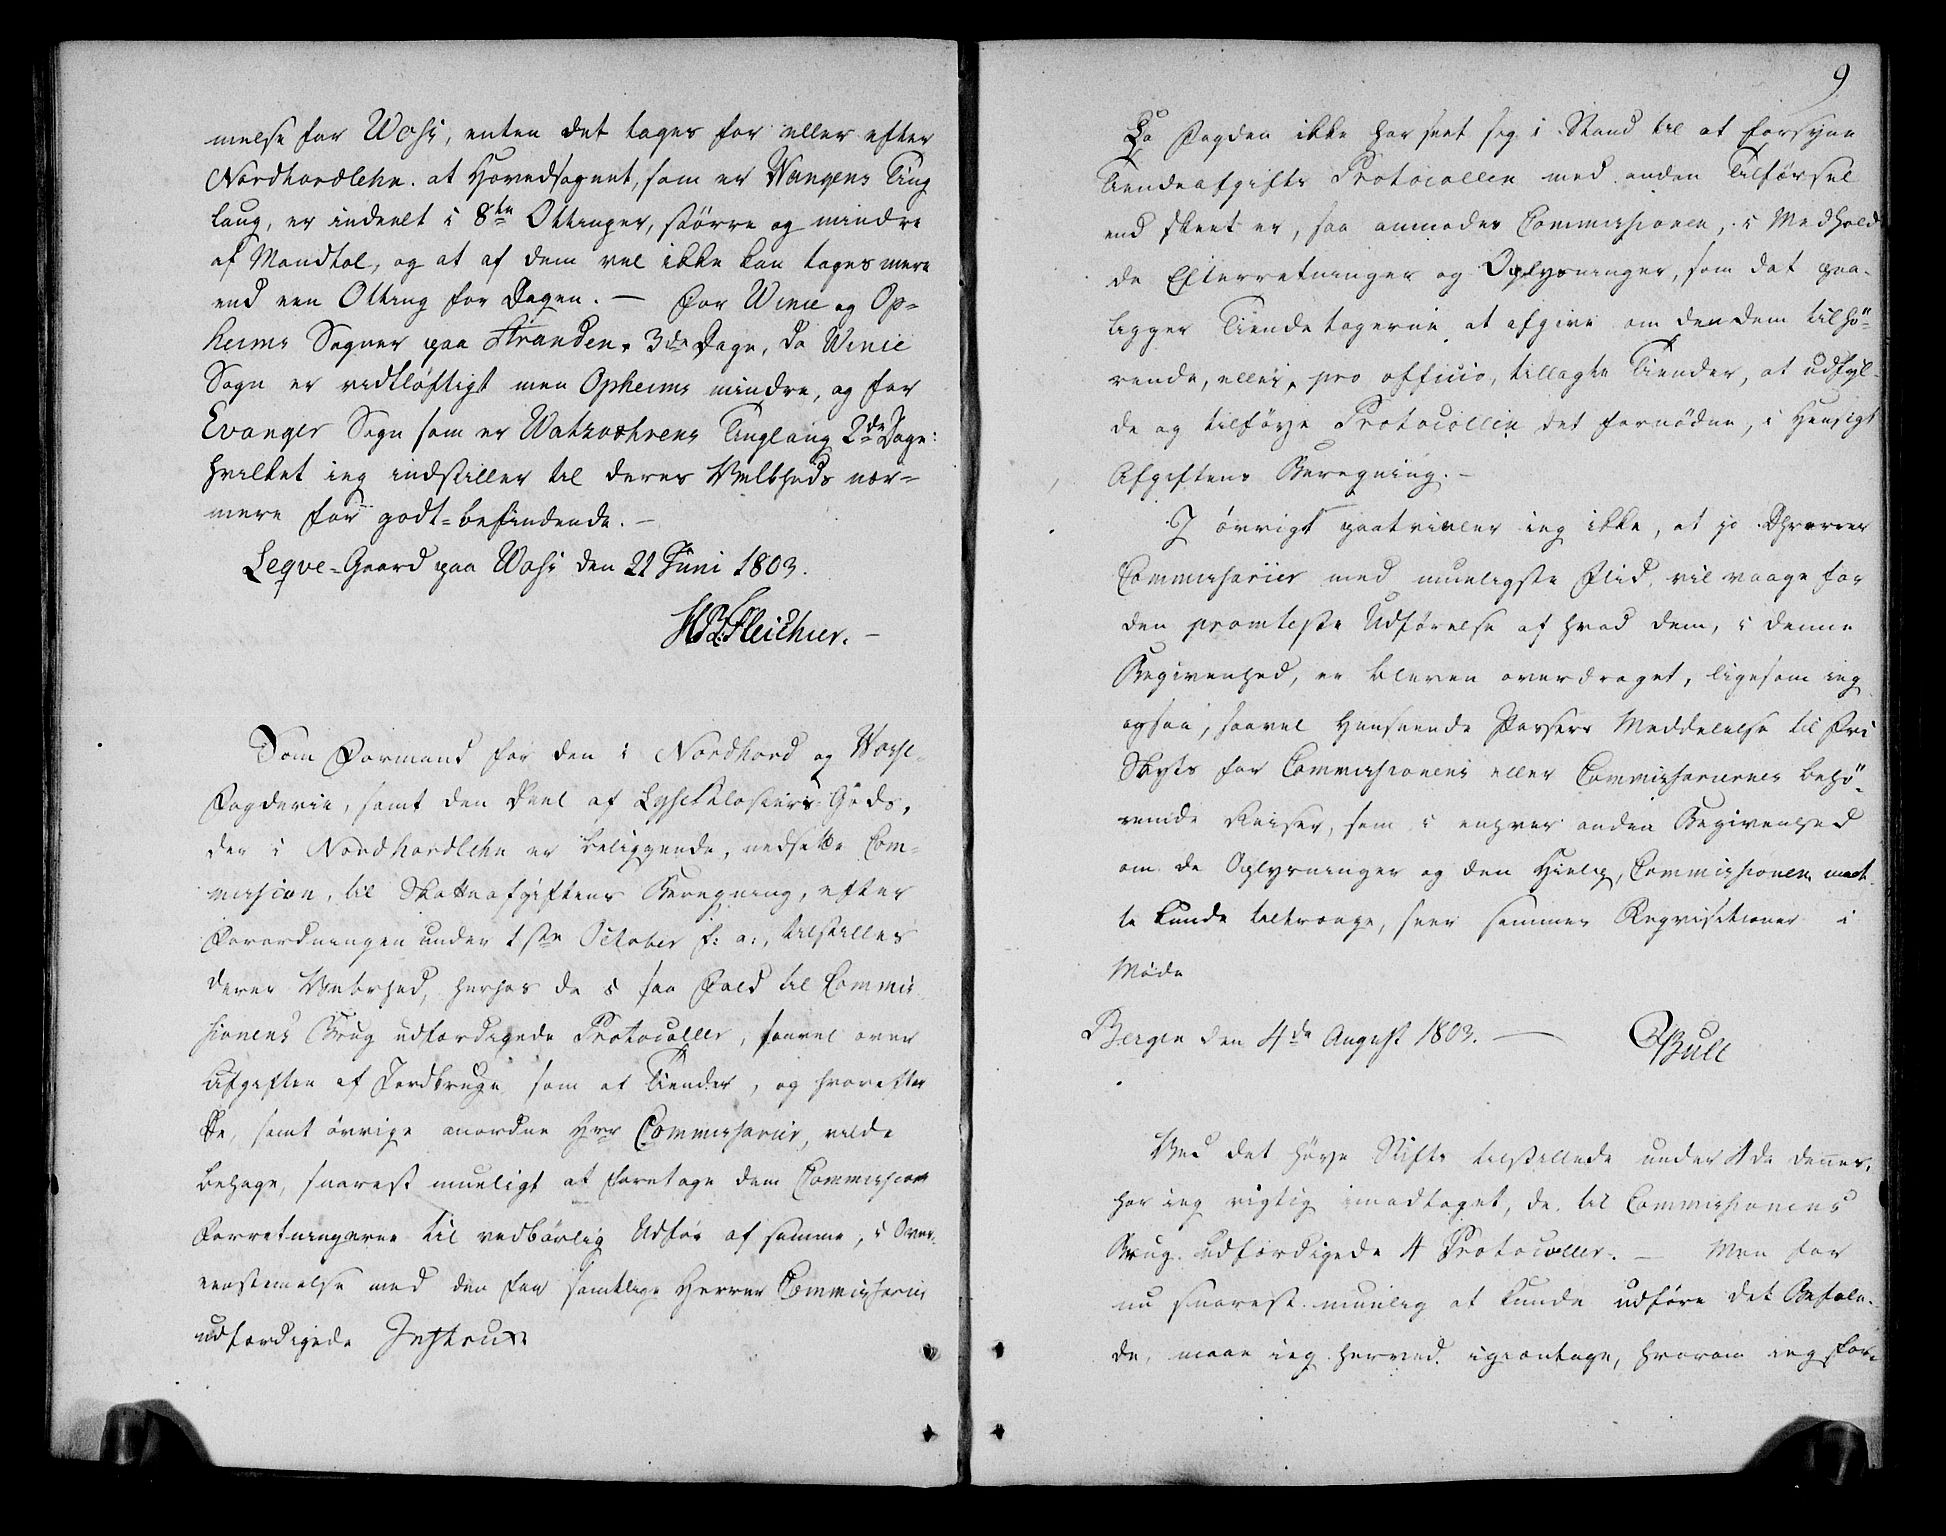 melse for Woss, enten det tages for eller efter
Nordhordlehn. at Hovedsognet, som er Wangens Ting
laug, er indeelt i 8te Ottinger, større og mindre
af Mandtal, og at af dem vel ikke kan tages mere
end een Otting for Dagen. — For Winie og Op=
heims Sogner paa Stranden, 3de Dage, da Winie
Sogn er vidtløftigt men Opheims mindre, og for
Evanger Sogn som er Tinglaug 2de Dage:
hvilket ieg indstiller til deres Velbheds nær=
mere for godt=befindende. —
Leqve=Gaard paa Woss den 21 Juni 1803.
Fleischer. —
Som Formand for den i Nordhord og Vosse-
Fogderie, samt den Deel af Lysekloster's Gods,
der i Nordhordlehn er beliggende, nedsatte Com-
mission, til Skatteafgiftens Beregning, efter
Forordningen under 1ste October f: a:, tilstilles
deres Velbrhed, herhos de i saa Fald til Commis
sionens Brug udfærdigede Protocoller, saavel over
Afgiften af Jordbruge som af Tiender, og hvorefter
De, samt øvrige anordne Hrr Commissarier, vilde
behage, snarest mueligt at foretage dem Commission
Forretningerne til vedbørlig Udfør af samme, i Over-
eenstemelse med den for samtlige Herrer Commissarier
udfærdigede Instrux
9
Da Fogden ikke har seet seg i Stand til at forsyne
Tiendeafgifts Protocollen med anden Tilførsel
end skeet er, saa anmodes Commissionen, i Medhold
de Efterretninger og Oplysninger, som det paa-
ligger Tiendetagerne at afgive om den dem tilhø-
rende, eller, pro officio, tillagte Tiender, at udfyl-
de og tilføye Protocollen det fornødne, i Hensigt
Afgiftens Beregning. —
I øvrigt paatvivler ieg ikke, at jo Dhrrer
Commissarier med mueligste Flid, vil vaage for
den promteste Udførelse af hvad dem, i denne
Begivenhed, er bleven overdraget, ligesom ieg
ogsaa, saavel Henseende Passers Meddelelse til Fri
Skyds for Commissionens eller Commissariernes behø-
vende Reiser, som i enhver anden Begivenhed
om de Oplysninger og den Hielp, Commissionen maat
te kunde tiltrænge, seer sammes Reqvisitioner i
Møde
Bergen den 4de August 1803. —
Bull
Med det høye Stifts tilstillede under 4de dennes,
har ieg rigtig imodtaget, de til Commissionens
Brug udfærdigede 4 Protocoller. — Men for
nu snarest muelig at kunde udføre det Befale-
de, maae ieg herved igientage, hvorom ieg for-